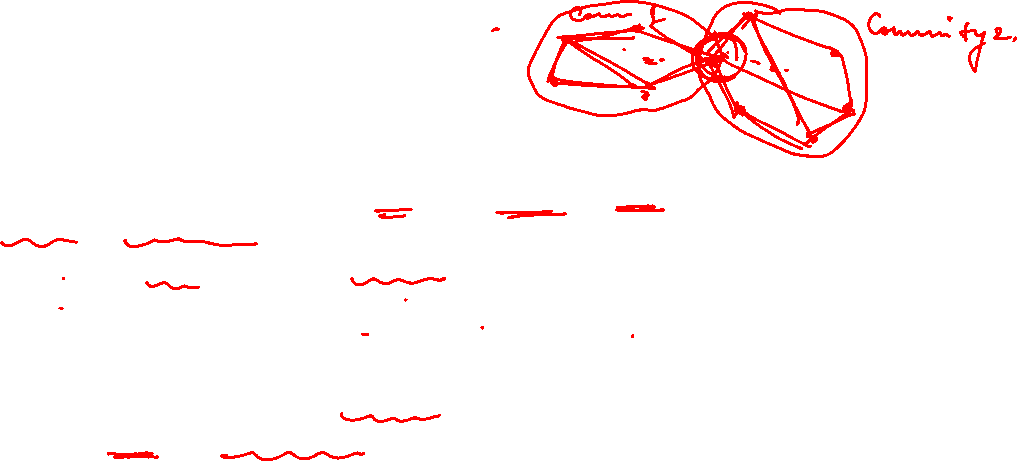 Com 1
Community 2.